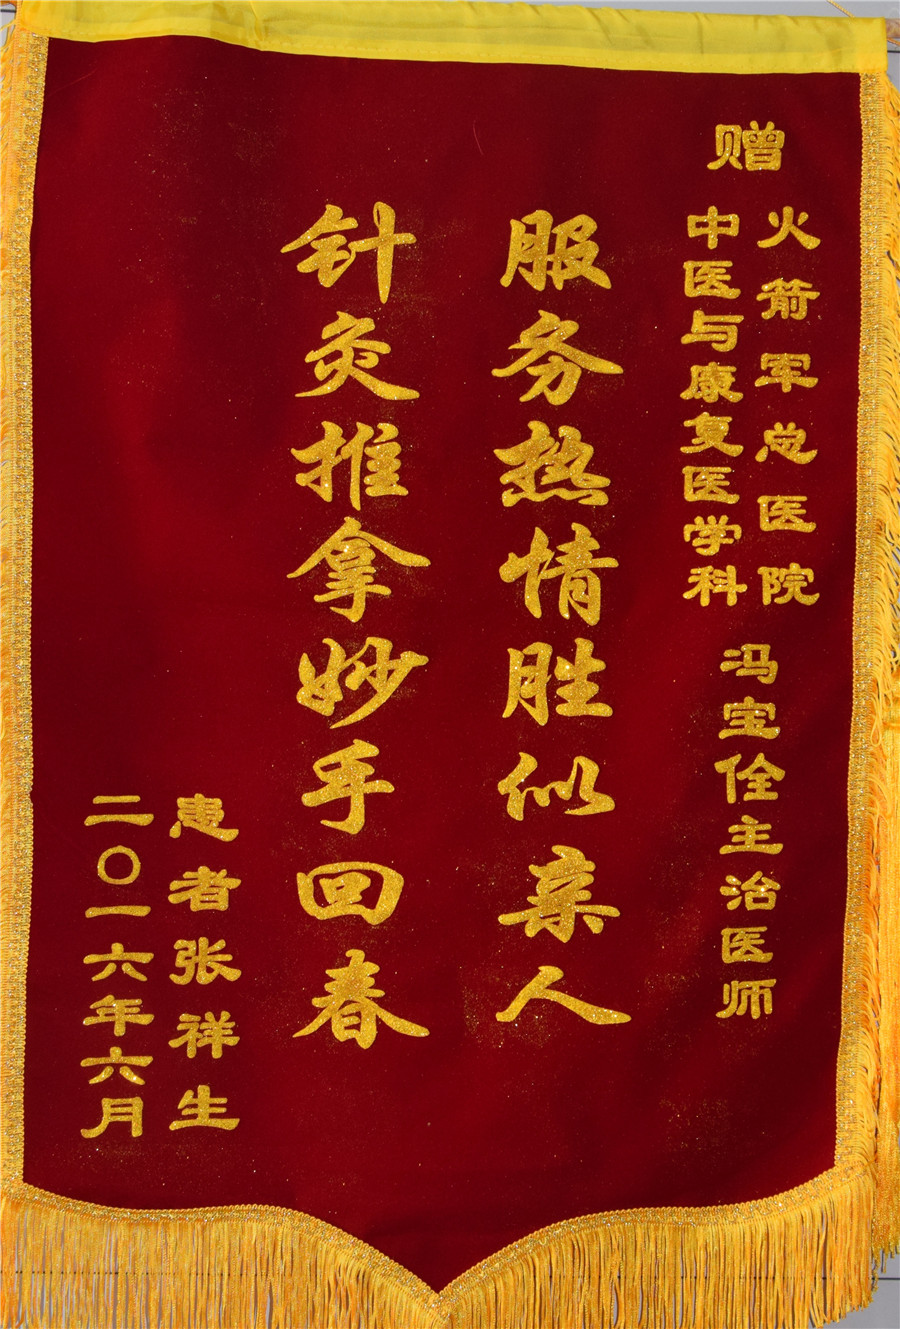 赠
火箭军总医院
中医与康复医学科
冯宝佺主治医师
服务热情胜似亲人
针灸推拿妙手回春
患者张祥生
二〇一六年六月